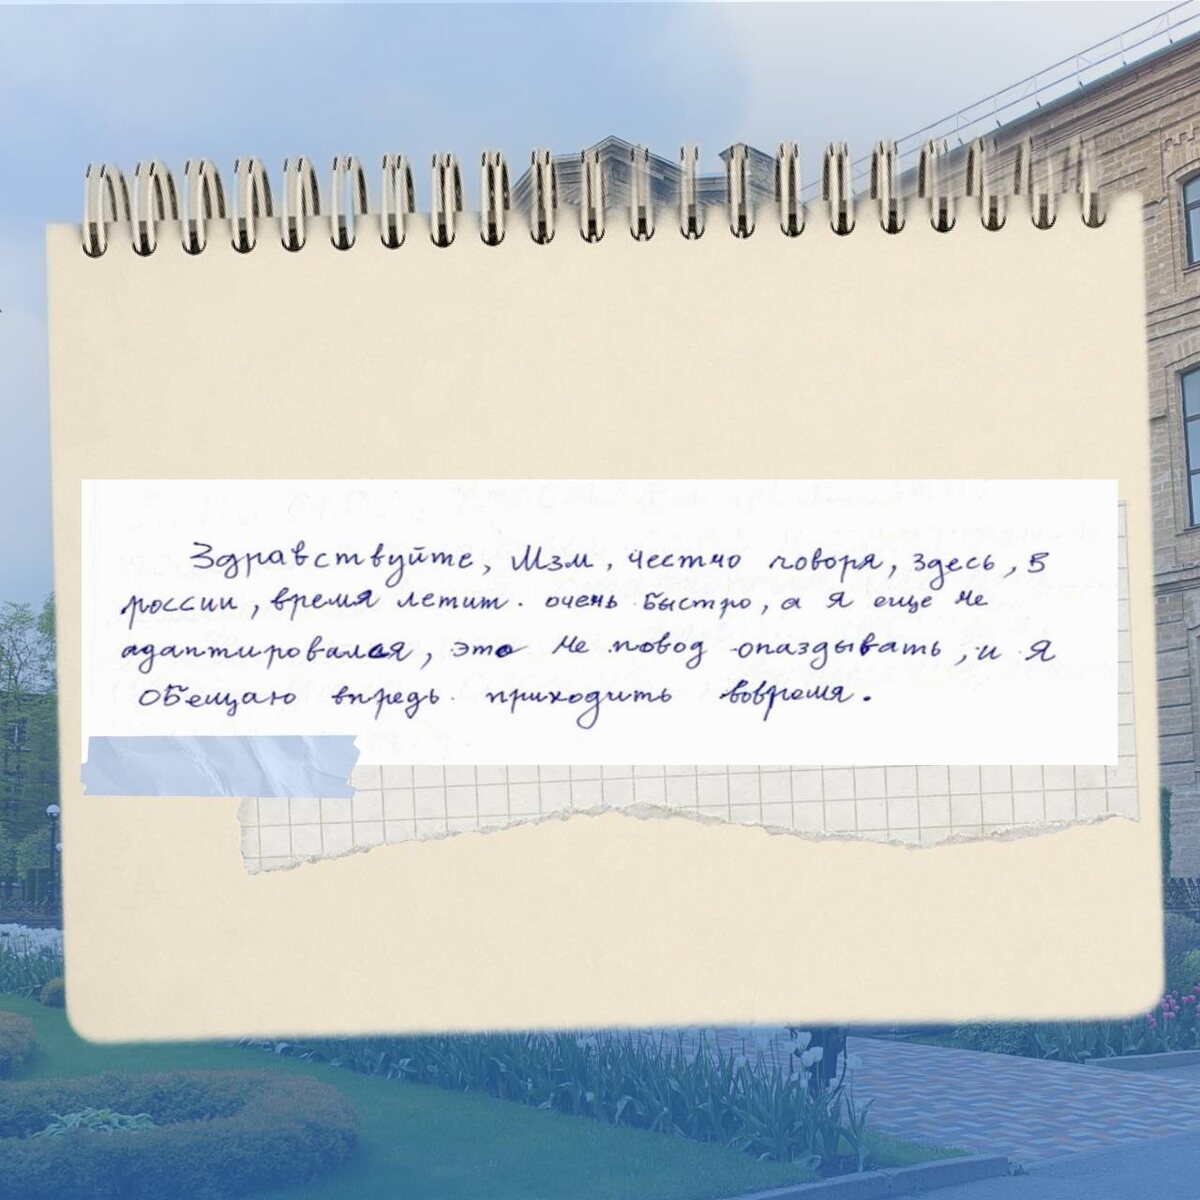 Здравствуйте, Мэм, честно говоря, здесь, в
россии, время летит очень быстро, а я еще не
адаптировался, это не повод опаздывать, и я
обещаю впредь приходить вовремя.